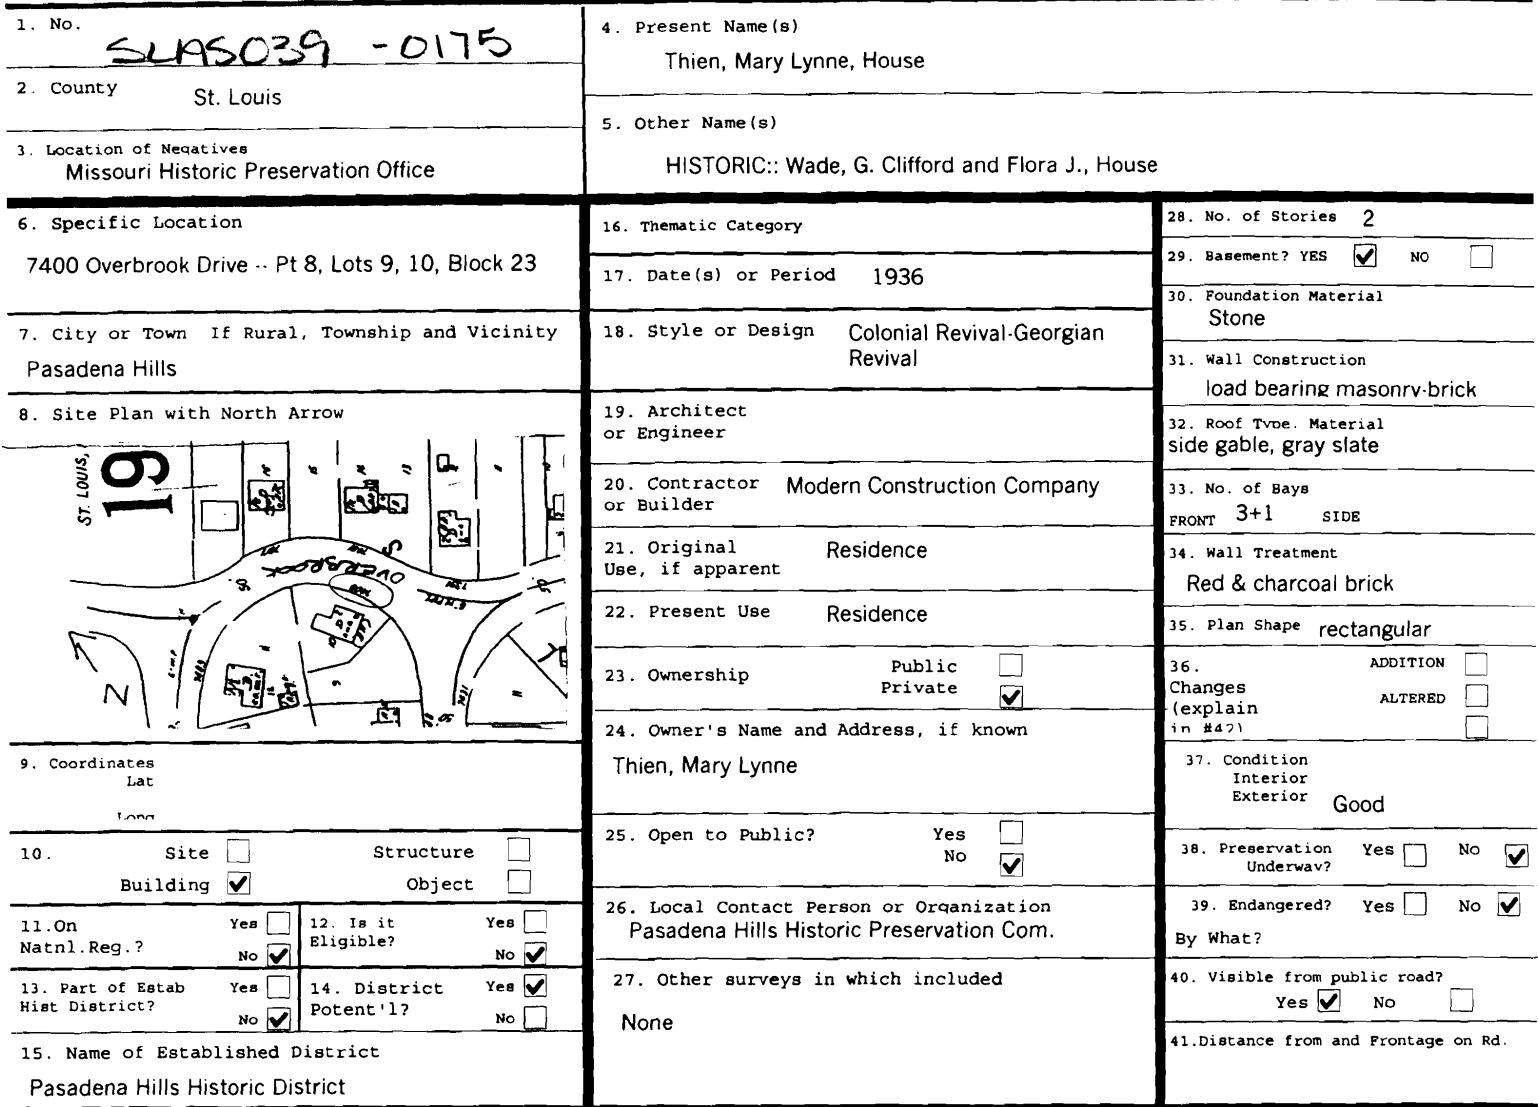 1. No.
SLAS039 -0175
2. County
St. Louis
3. Location of Negatives
Missouri Historic Preservation Office
4. Present Name(s)
Thien, Mary Lynne, House
5. Other Name(s)
HISTORIC:: Wade, G. Clifford and Flora J., House
6. Specific Location
7400 Overbrook Drive -- Pt 8, Lots 9, 10, Block 23
7. City or Town If Rural, Township and Vicinity
Pasadena Hills
8. Site Plan with North Arrow
ST. LOUIS,
19
OVERBROOK
N
9. Coordinates
Lat
Long
10. Site Structure
Building ✔ Object
11.On
Natnl.Reg.?
Yes
No ✔
12. Is it
Eligible?
Yes
No ✔
13. Part of Estab
Hist District?
Yes
No ✔
14. District
Potent'l?
Yes ✔
No
15. Name of Established District
Pasadena Hills Historic District
16. Thematic Category
17. Date(s) or Period 1936
18. Style or Design Colonial Revival-Georgian
Revival
19. Architect
or Engineer
20. Contractor Modern Construction Company
or Builder
21. Original Residence
Use, if apparent
22. Present Use Residence
23. Ownership
Public
Private ✔
24. Owner's Name and Address, if known
Thien, Mary Lynne
25. Open to Public? Yes
No ✔
26. Local Contact Person or Organization
Pasadena Hills Historic Preservation Com.
27. Other surveys in which included
None
28. No. of Stories 2
29. Basement? YES ✔ NO
30. Foundation Material
Stone
31. Wall Construction
load bearing masonry-brick
32. Roof Type. Material
side gable, gray slate
33. No. of Bays
FRONT 3+1 SIDE
34. Wall Treatment
Red & charcoal brick
35. Plan Shape rectangular
36.
Changes
(explain
in #42)
ADDITION
ALTERED
37. Condition
Interior
Exterior Good
38. Preservation Yes No ✔
Underway?
39. Endangered? Yes No ✔
By What?
40. Visible from public road?
Yes ✔ No
41.Distance from and Frontage on Rd.